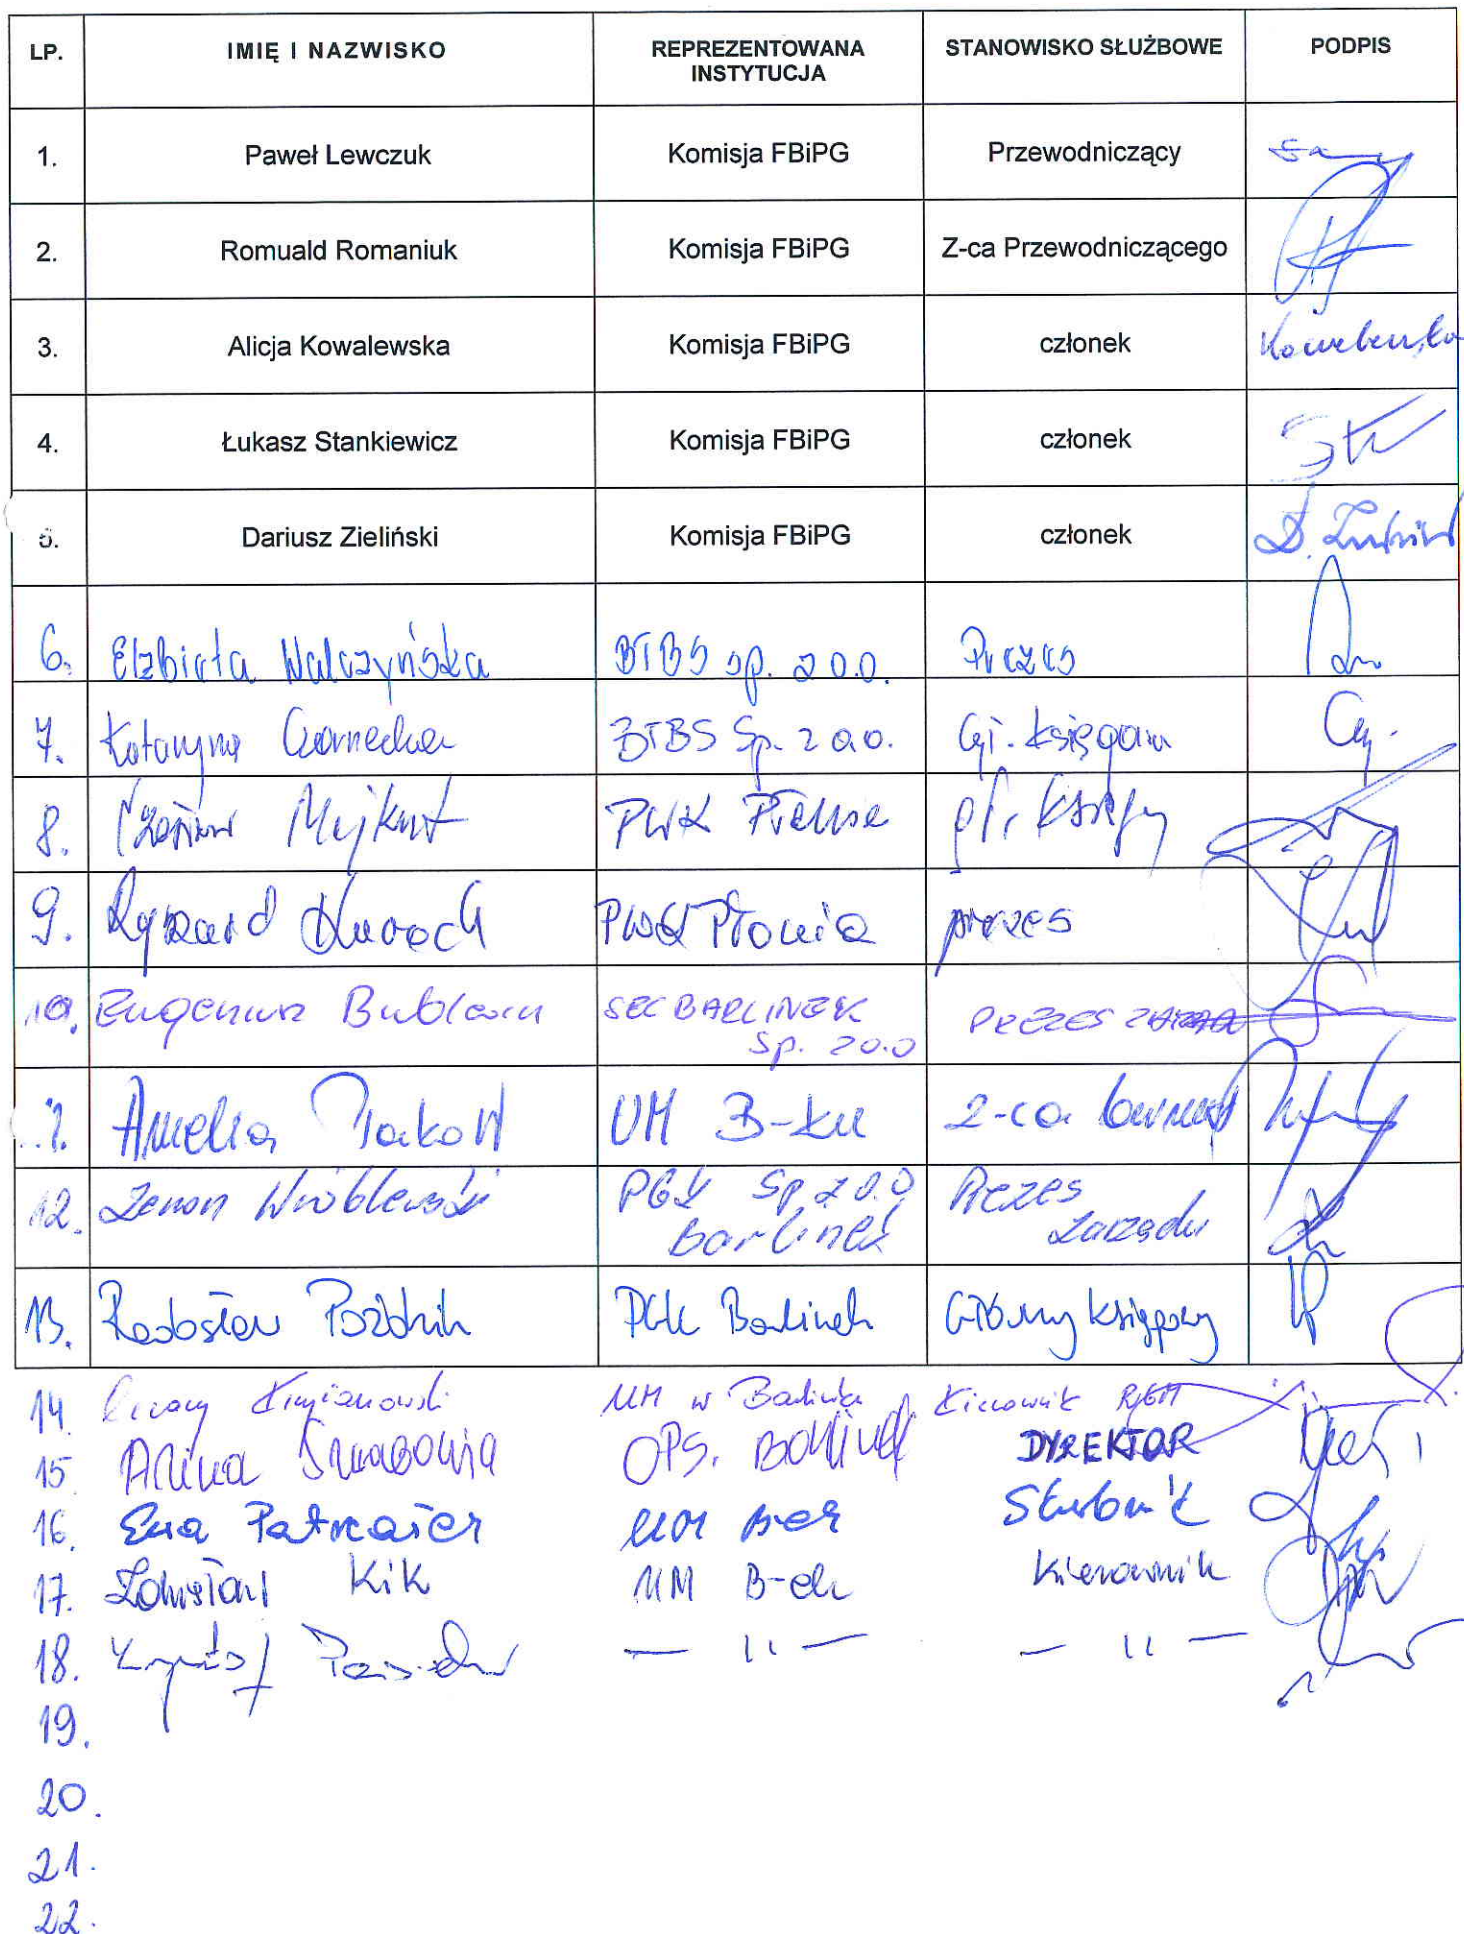 LP. IMIĘ I NAZWISKO REPREZENTOWANA INSTYTUCJA STANOWISKO SŁUŻBOWE PODPIS
1. Paweł Lewczuk Komisja FBiPG Przewodniczący
2. Romuald Romaniuk Komisja FBiPG Z-ca Przewodniczącego
3. Alicja Kowalewska Komisja FBiPG członek Kowalewska
4. Łukasz Stankiewicz Komisja FBiPG członek
5. Dariusz Zieliński Komisja FBiPG członek D. Zieliński
6. Elżbieta Walczyńska BTBS sp. z o.o. Prezes
7. Katarzyna Czarnecka BTBS Sp. z o.o. Gł. księgowa
8. Majkut PWK Płonia gł. księgowy
9. Ryszard PWK Płonia prezes
10. Eugeniusz SEC BARLINEK Sp. z o.o PREZES
Amelia UM B-ku Z-ca
12. Zenon Wróblewski PGK Sp. z o.o Barlinek Prezes Zarządu
13. Radosław Poździk PGK Barlinek Główny księgowy
14 UM w Barlinku Kierownik
15 OPS. Barlinek DYREKTOR
16. Ewa UM Skarbnik
17. Kik UM B-ek Kierownik
18. — ıı — — ıı —
19.
20.
21.
22.